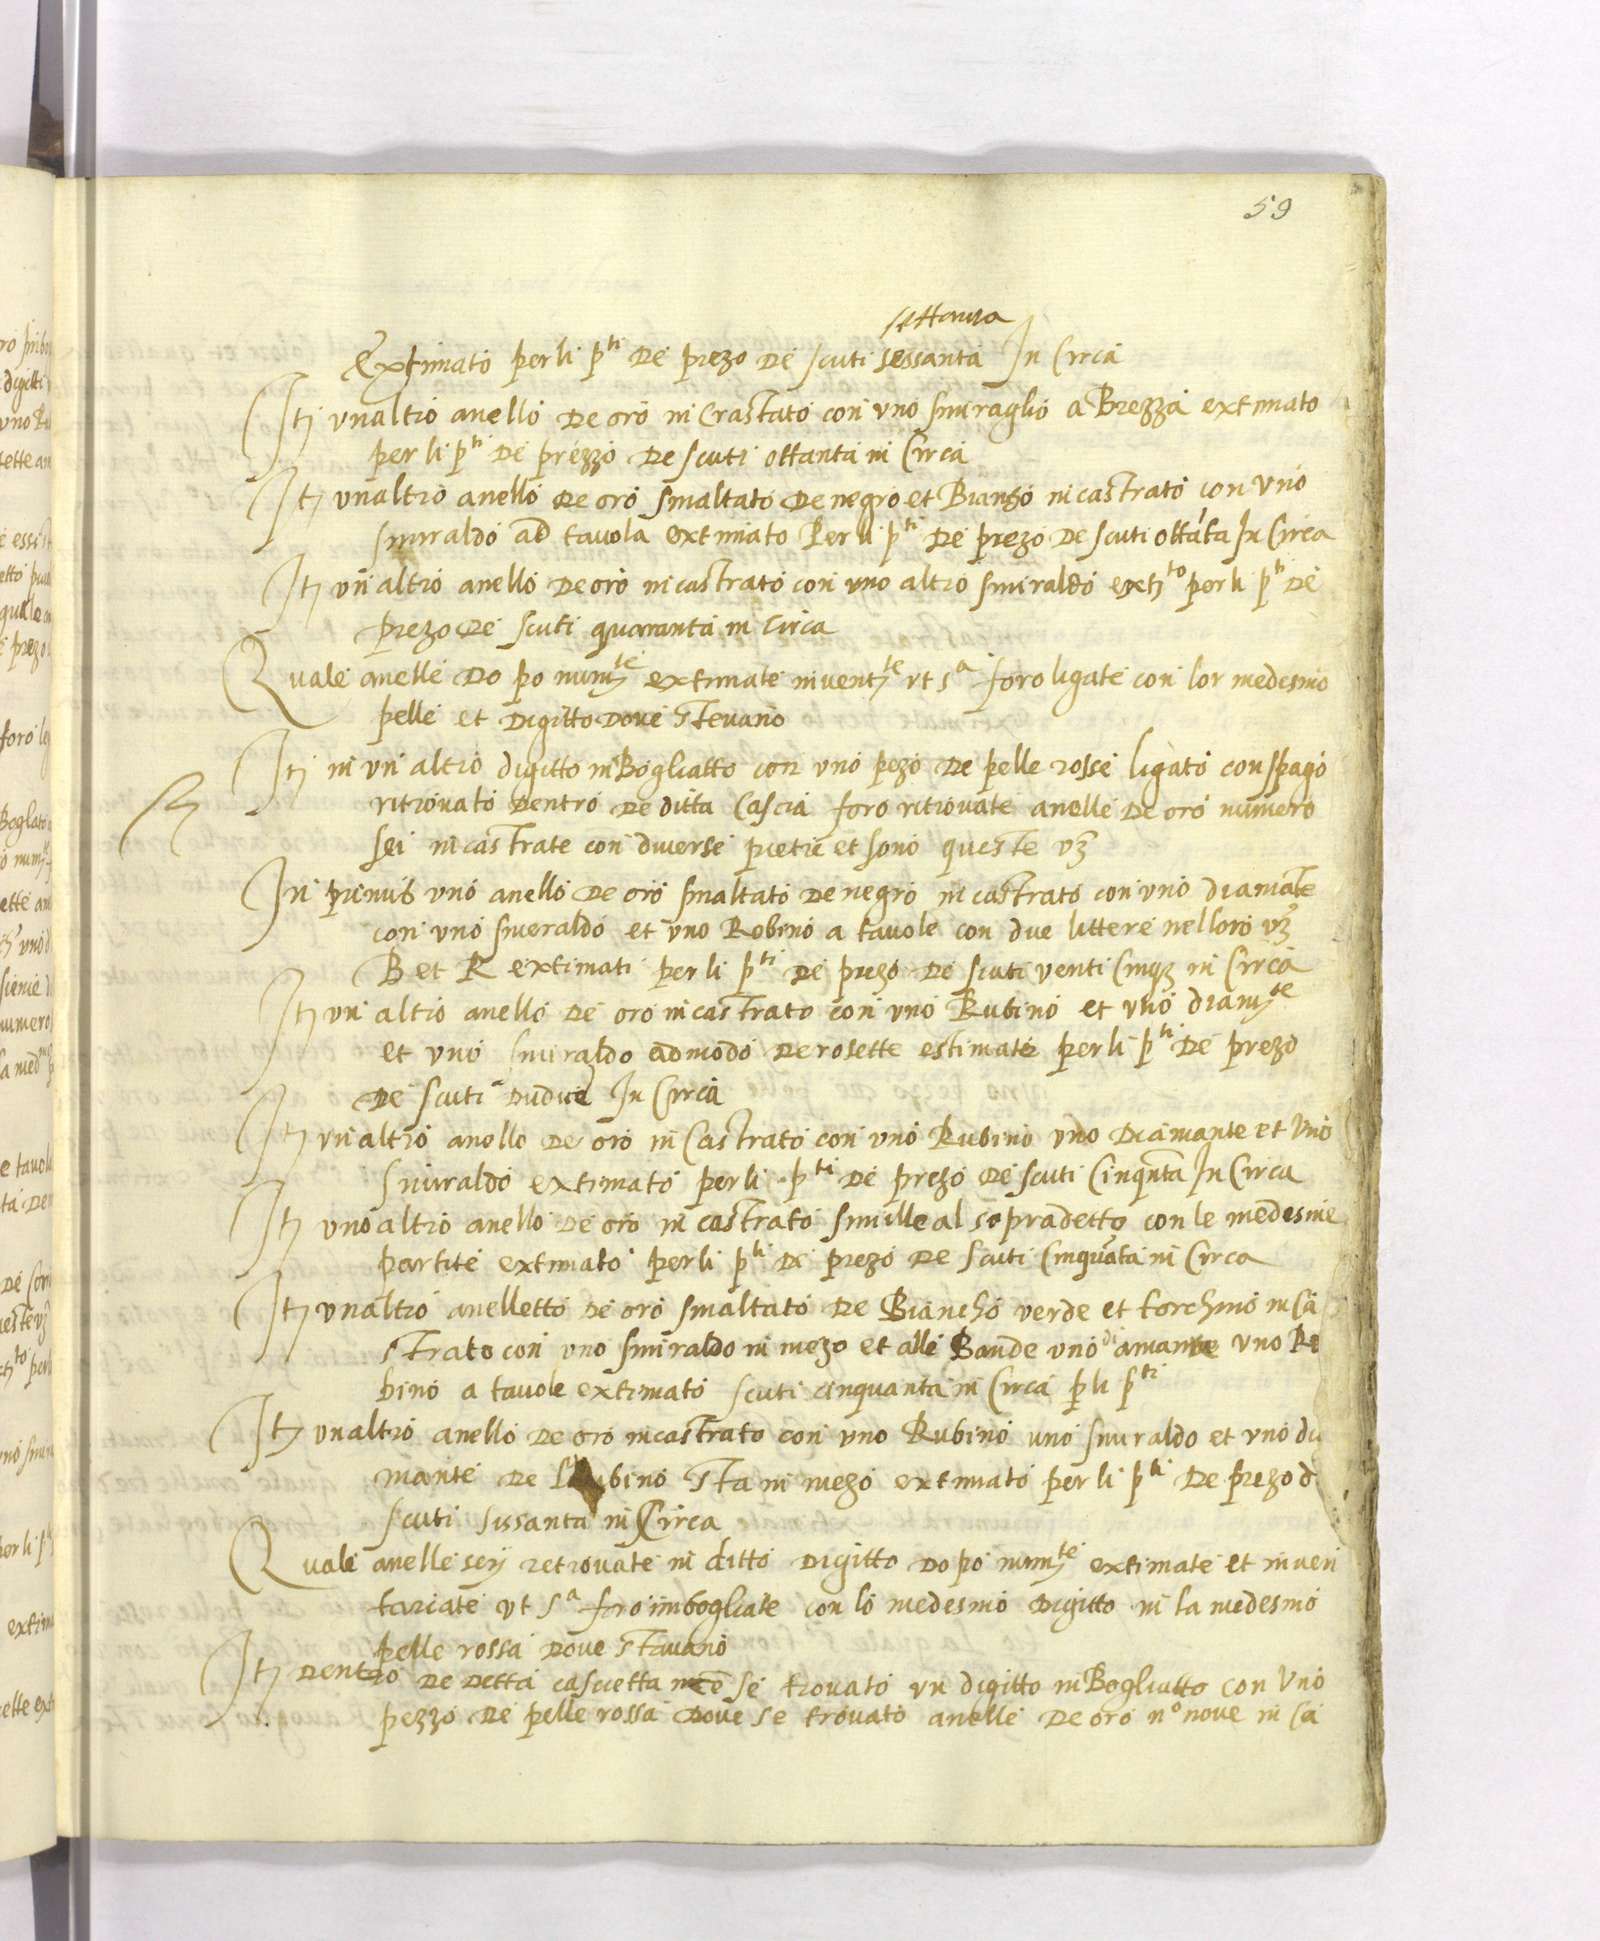 59
settanta
Extimato per li p^ti de prezo de scuti sessanta in circa
Itȝ un altro anello de oro incrastato con uno smiraglio a Brezza extimato
per li p^ti de prezzo de scuti ottanta in circa
Itȝ un altro anello de oro smaltato de negro et Bianzo incastrato con uno
smiraldo ad tavola extimato Per li p^ti de prezo de scuti ottāta in circa
Itȝ un altro anello de oro incastrato con uno altro smiraldo extȝ^to per li p^ti de
prezo de scuti quaranta in circa
Quale anelle dopo numȝ^te extimate inventȝ^te ut s^a foro ligate con lor medesmo
pelle et digitto dove stevano
Itȝ in un altro digitto inBogliatto con uno pezo de pelle rosse ligato con spago
ritrovato dentro de ditta cascia foro ritrovate anelle de oro numero
sei incastrate con diverse pietre et sono queste vȝ
In primis uno anello de oro smaltato de negro incastrato con uno diamāte
con uno smeraldo et uno Robino a tavole con due littere nell oro vȝ
B et R extimati per li p^ti de prezo de scuti venti cinqȝ in circa
Itȝ un altro anello de oro incastrato con uno Rubino et uno diamȝ^te
et uno smiraldo ad modo de rosette estimate per li p^ti de prezo
de scuti dudice in circa
Itȝ un altro anello de oro incastrato con uno Rubino uno diamante et uno
smiraldo extimato per li p^ti de prezo de scuti cinqnta in circa
Itȝ uno altro anello de oro incastrato simille al sopradetto con le medesme
partite extimato per li p^ti de prezo de scuti cinquāta in circa
Itȝ un altro anelletto de oro smaltato de Biancho verde et torchino inca
strato con uno smiraldo in mezo et alle Bande uno diamante uno Ro
bino a tavole extimato scuti cinquanta in circa p li p^ti
Itȝ un altro anello de oro incastrato con uno Rubino uno smiraldo et uno dia
mante de Rubino sta in mezo extimato per li p^ti de prezo d
scuti sissanta in circa
Quale anelle seij retrovate in ditto digitto dopo numȝ^te extimate et inven
tariate ut s^a foro imbogliate con lo medesmo digitto in la medesmo
pelle rossa dove stavano
Itȝ dentro de detta cascietta nce se trovato un digitto inBogliatto con uno
pezzo de pelle rossa dove se trovato anelle de oro n^o nove in ca